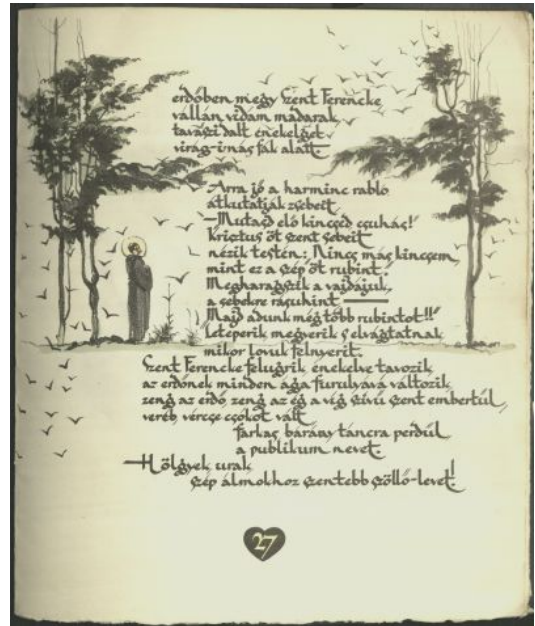 erdőben megy Szent Ferencke
vállán vidám madarak,
tavaszi dalt énekelget
virág-inás fák alatt.
Arra jő a harminc rabló
átkutatják zsebeit,
—Mutasd elő kincsed csuhás!
Krisztus öt szent sebeit
nézik testén: Nincs más kincsem,
mint ez a szép öt rubint.
Megharagszik a vajdájuk,
a sebekre rásuhint —
Majd adunk még több rubintot!!
Leteperik megverik s elvágtatnak
mikor lovuk felnyerít.
Szent Ferencke felugrik énekelve távozik,
az erdőnek minden ága furulyává változik,
zeng az erdő, zeng az ég a víg szívű szent embertül,
veréb, vércse csókot vált
farkas bárány táncra perdül
a publikum nevet.
—Hölgyek urak
szép álmokhoz szentebb szöllő-levet!
27